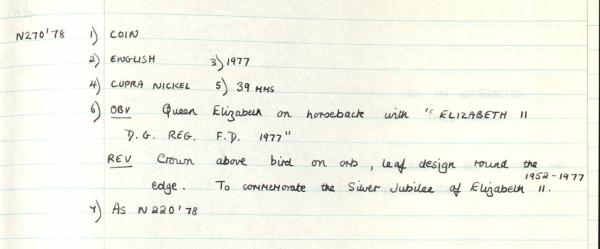 N270'78 1) COIN
2) ENGLISH 3) 1977
4) CUPRA NICKEL 5) 39 MMS
6) OBV Queen Elizabeth on horseback with "ELIZABETH II
D. G. REG. F.D. 1977"
REV Crown above bird on orb, leaf design round the
edge. To commemorate the Silver Jubilee of Elizabeth II. 1952-1977
7) As N220'78